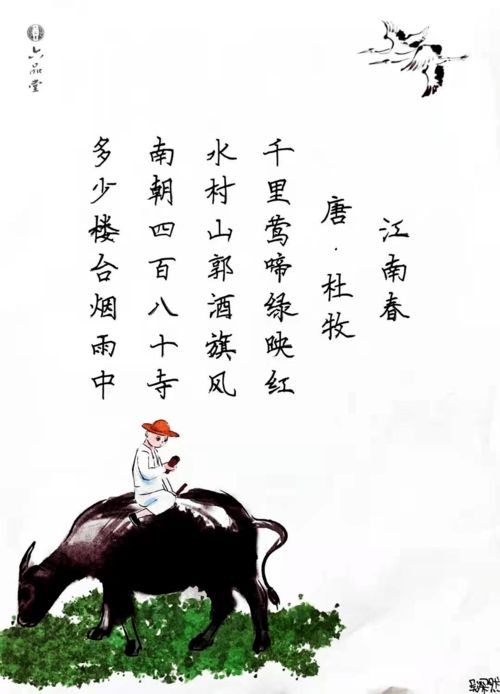 江南春
唐·杜牧
千里莺啼绿映红
水村山郭酒旗风
南朝四百八十寺
多少楼台烟雨中
六品堂